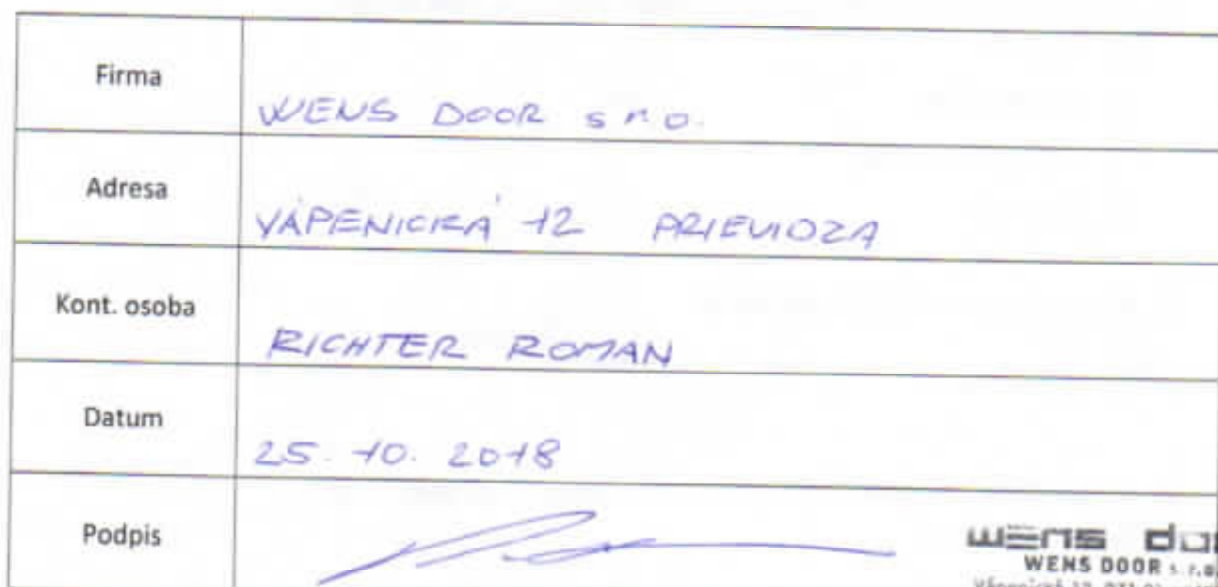 Firma
WENS DOOR s r.o.
Adresa
VÁPENICKÁ 12 PRIEVIDZA
Kont. osoba
RICHTER ROMAN
Datum
25. 10. 2018
Podpis
wens do
WENS DOOR s.r.o.